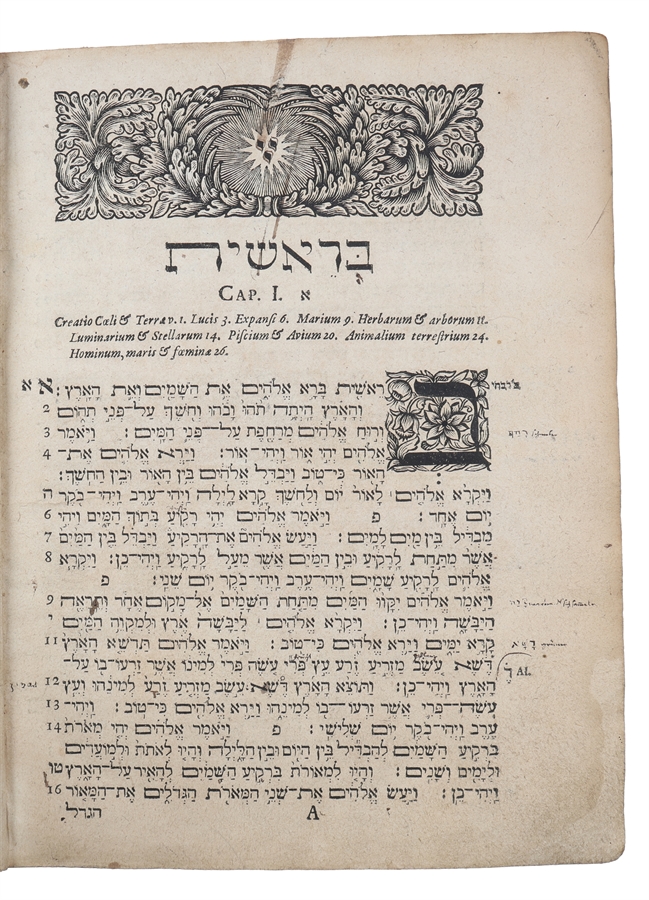 בְּרֵאשִׁית
CAP. I. א
Creatio Cœli & Terræ v. 1. Lucis 3. Expansi 6. Marium 9. Herbarum & arborum 11.
Luminarium & Stellarum 14. Piscium & Avium 20. Animalium terrestrium 24.
Hominum, maris & fœminæ 26.
ב רֵאשִׁית בָּרָא אֱלֹהִים אֵת הַשָּׁמַיִם וְאֵת הָאָרֶץ׃ א א
וְהָאָרֶץ הָיְתָה תֹהוּ וָבֹהוּ וְחֹשֶׁךְ עַל־פְּנֵי תְהוֹם 2
וְרוּחַ אֱלֹהִים מְרַחֶפֶת עַל־פְּנֵי הַמָּיִם׃ וַיֹּאמֶר 3
אֱלֹהִים יְהִי אוֹר וַיְהִי־אוֹר׃ וַיַּרְא אֱלֹהִים אֶת־ 4
הָאוֹר כִּי־טוֹב וַיַּבְדֵּל אֱלֹהִים בֵּין הָאוֹר וּבֵין הַחֹשֶׁךְ׃
וַיִּקְרָא אֱלֹהִים לָאוֹר יוֹם וְלַחֹשֶׁךְ קָרָא לָיְלָה וַיְהִי־עֶרֶב וַיְהִי־בֹקֶר ה
יוֹם אֶחָד׃ פ וַיֹּאמֶר אֱלֹהִים יְהִי רָקִיעַ בְּתוֹךְ הַמָּיִם וִיהִי 6
מַבְדִּיל בֵּין מַיִם לָמָיִם׃ וַיַּעַשׂ אֱלֹהִים אֶת־הָרָקִיעַ וַיַּבְדֵּל בֵּין הַמַּיִם 7
אֲשֶׁר מִתַּחַת לָרָקִיעַ וּבֵין הַמַּיִם אֲשֶׁר מֵעַל לָרָקִיעַ וַיְהִי־כֵן׃ וַיִּקְרָא 8
אֱלֹהִים לָרָקִיעַ שָׁמָיִם וַיְהִי־עֶרֶב וַיְהִי־בֹקֶר יוֹם שֵׁנִי׃ פ
וַיֹּאמֶר אֱלֹהִים יִקָּווּ הַמַּיִם מִתַּחַת הַשָּׁמַיִם אֶל־מָקוֹם אֶחָד וְתֵרָאֶה 9
הַיַּבָּשָׁה וַיְהִי־כֵן׃ וַיִּקְרָא אֱלֹהִים לַיַּבָּשָׁה אֶרֶץ וּלְמִקְוֵה הַמַּיִם י
קָרָא יַמִּים וַיַּרְא אֱלֹהִים כִּי־טוֹב׃ וַיֹּאמֶר אֱלֹהִים תַּדְשֵׁא הָאָרֶץ 11
דֶּשֶׁא עֵשֶׂב מַזְרִיעַ זֶרַע עֵץ פְּרִי עֹשֶׂה פְּרִי לְמִינוֹ אֲשֶׁר זַרְעוֹ־בוֹ עַל־
הָאָרֶץ וַיְהִי־כֵן׃ וַתּוֹצֵא הָאָרֶץ דֶּשֶׁא עֵשֶׂב מַזְרִיעַ זֶרַע לְמִינֵהוּ וְעֵץ 12
עֹשֶׂה־פְּרִי אֲשֶׁר זַרְעוֹ־בוֹ לְמִינֵהוּ וַיַּרְא אֱלֹהִים כִּי־טוֹב׃ וַיְהִי־ 13
עֶרֶב וַיְהִי־בֹקֶר יוֹם שְׁלִישִׁי׃ פ וַיֹּאמֶר אֱלֹהִים יְהִי מְאֹרֹת 14
בִּרְקִיעַ הַשָּׁמַיִם לְהַבְדִּיל בֵּין הַיּוֹם וּבֵין הַלָּיְלָה וְהָיוּ לְאֹתֹת וּלְמוֹעֲדִים
וּלְיָמִים וְשָׁנִים׃ וְהָיוּ לִמְאוֹרֹת בִּרְקִיעַ הַשָּׁמַיִם לְהָאִיר עַל־הָאָרֶץ טו
וַיְהִי־כֵן׃ וַיַּעַשׂ אֱלֹהִים אֶת־שְׁנֵי הַמְּאֹרֹת הַגְּדֹלִים אֶת־הַמָּאוֹר 16
הגדל
A